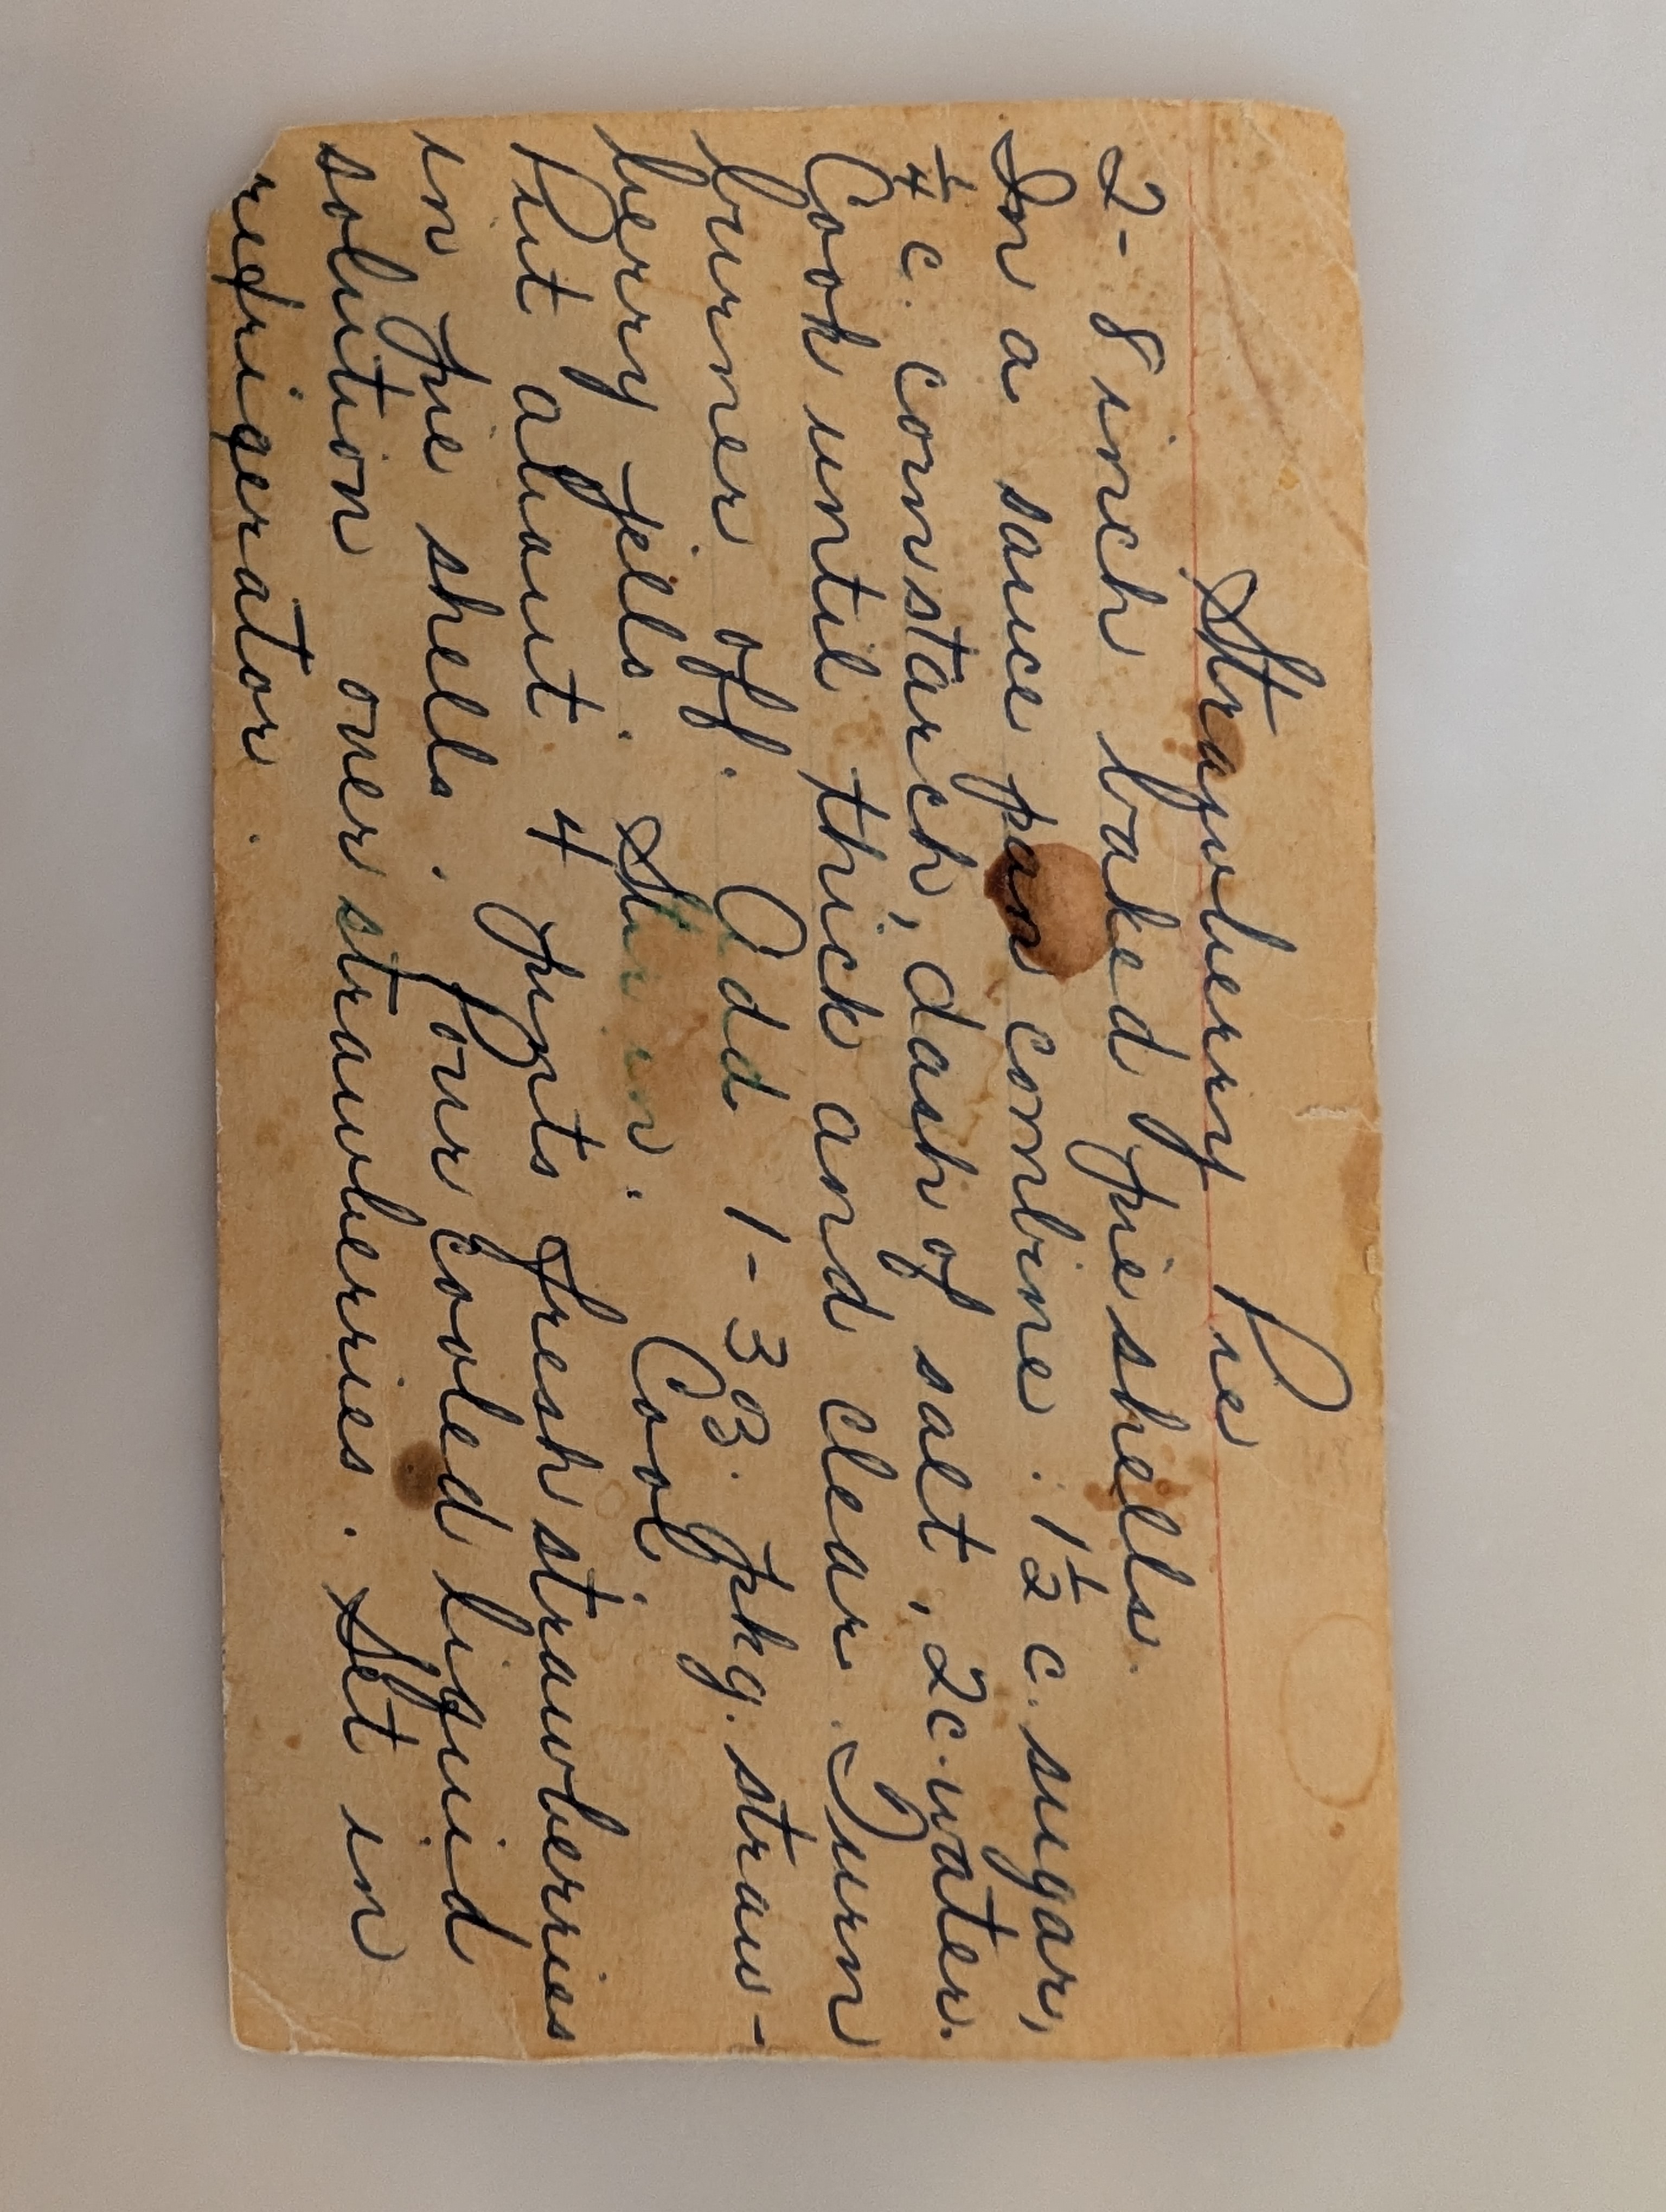 Strawberry Pie
2 - 8 inch baked pie shells.
In a sauce pan combine. 1 1/2 c. sugar,
1/4 c. cornstarch, dash of salt, 2c. water.
Cook until thick and clear. Turn
burner off. Add 1 - 3 oz. pkg. straw-
berry jello. Stir in. Cool.
Put about 4 pints fresh strawberries
in pie shells. Pour cooled liquid
solution over strawberries. Set in
refrigerator.